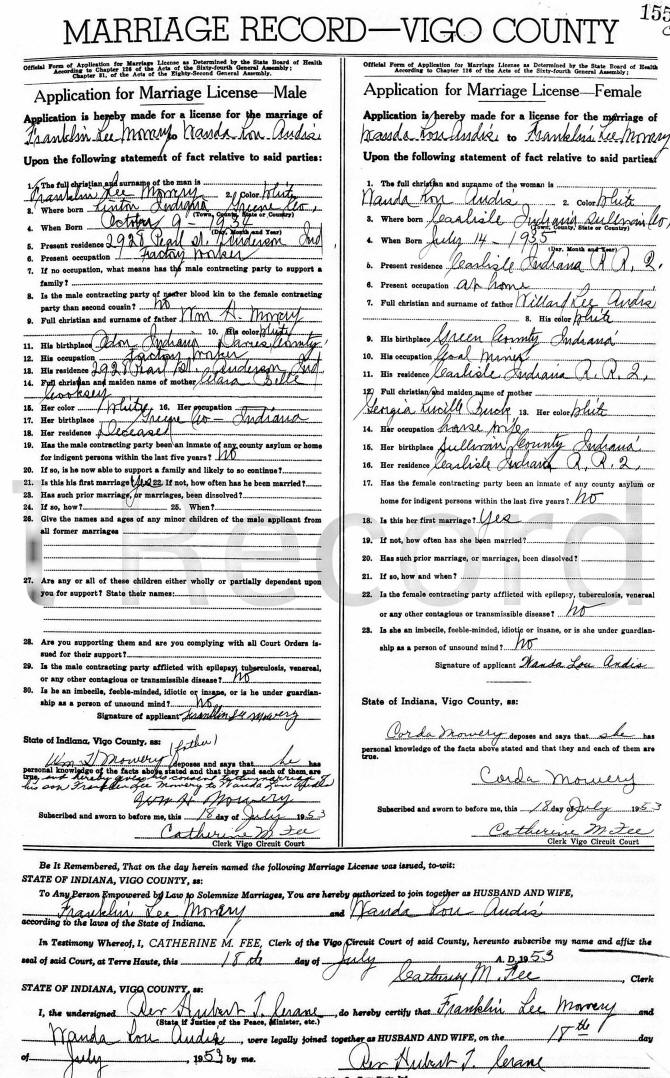 155
MARRIAGE RECORD—VIGO COUNTY
Official Form of Application for Marriage License as Determined by the State Board of Health
According to Chapter 126 of the Acts of the Sixty-fourth General Assembly;
Chapter 81, of the Acts of the Eighty-Second General Assembly.
Application for Marriage License—Male
Application is hereby made for a license for the marriage of
Franklin Lee Mowery to Wanda Lou Andis
Upon the following statement of fact relative to said parties:
1. The full christian and surname of the man is
Franklin Lee Mowery 2. Color White
3. Where born Linton Indiana Greene Co,
(Town, County, State or Country)
4. When Born October 9 - 1934
(Day, Month and Year)
5. Present residence 2928 Pearl St. Anderson Ind
6. Present occupation Factory Worker
7. If no occupation, what means has the male contracting party to support a
family?
8. Is the male contracting party of nearer blood kin to the female contracting
party than second cousin? No
9. Full christian and surname of father Wm H. Mowery
10. His color White
11. His birthplace Odon, Indiana Daviess County
12. His occupation Factory Worker
13. His residence 2928 Pearl St. Anderson Ind
14. Full christian and maiden name of mother Clara Belle
Cooksey
15. Her color White 16. Her occupation
17. Her birthplace Greene Co - Indiana
18. Her residence Deceased
19. Has the male contracting party been an inmate of any county asylum or home
for indigent persons within the last five years? No
20. If so, is he now able to support a family and likely to so continue?
21. Is this his first marriage? Yes 22. If not, how often has he been married?
23. Has such prior marriage, or marriages, been dissolved?
24. If so, how? 25. When?
26. Give the names and ages of any minor children of the male applicant from
all former marriages
27. Are any or all of these children either wholly or partially dependent upon
you for support? State their names:
28. Are you supporting them and are you complying with all Court Orders is-
sued for their support?
29. Is the male contracting party afflicted with epilepsy, tuberculosis, venereal,
or any other contagious or transmissible disease? No
30. Is he an imbecile, feeble-minded, idiotic or insane, or is he under guardian-
ship as a person of unsound mind? No
Signature of applicant Franklin Lee Mowery
State of Indiana, Vigo County, ss:
(father)
Wm H Mowery deposes and says that he has
personal knowledge of the facts above stated and that they and each of them are
true, and hereby gives his consent to the marriage of
his son Franklin Lee Mowery to Wanda Lou Andis
Wm H Mowery
Subscribed and sworn to before me, this 18 day of July 1953
Catherine M Fee
Clerk Vigo Circuit Court
Official Form of Application for Marriage License as Determined by the State Board of Health
According to Chapter 126 of the Acts of the Sixty-fourth General Assembly;
Chapter 81, of the Acts of the Eighty-Second General Assembly.
Application for Marriage License—Female
Application is hereby made for a license for the marriage of
Wanda Lou Andis to Franklin Lee Mowery
Upon the following statement of fact relative to said parties:
1. The full christian and surname of the woman is
Wanda Lou Andis 2. Color White
3. Where born Carlisle Indiana Sullivan Co,
(Town, County, State or Country)
4. When Born July 14 - 1935
(Day, Month and Year)
5. Present residence Carlisle Indiana R R, 2,
6. Present occupation at home
7. Full christian and surname of father Willard Lee Andis
8. His color White
9. His birthplace Green County Indiana
10. His occupation Coal Miner
11. His residence Carlisle Indiana R R 2,
12. Full christian and maiden name of mother
Georgia Lucille Buck 13. Her color White
14. Her occupation house wife
15. Her birthplace Sullivan County Indiana
16. Her residence Carlisle Indiana R, R, 2,
17. Has the female contracting party been an inmate of any county asylum or
home for indigent persons within the last five years? No
18. Is this her first marriage? Yes
19. If not, how often has she been married?
20. Has such prior marriage, or marriages, been dissolved?
21. If so, how and when?
22. Is the female contracting party afflicted with epilepsy, tuberculosis, venereal
or any other contagious or transmissible disease? No
23. Is she an imbecile, feeble-minded, idiotic or insane, or is she under guardian-
ship as a person of unsound mind? No
Signature of applicant Wanda Lou Andis
State of Indiana, Vigo County, ss:
Corda Mowery deposes and says that she has
personal knowledge of the facts above stated and that they and each of them are
true.
Corda Mowery
Subscribed and sworn to before me, this 18 day of July 1953
Catherine M Fee
Clerk Vigo Circuit Court
Be It Remembered, That on the day herein named the following Marriage License was issued, to-wit:
STATE OF INDIANA, VIGO COUNTY, ss:
To Any Person Empowered by Law to Solemnize Marriages, You are hereby authorized to join together as HUSBAND AND WIFE,
Franklin Lee Mowery and Wanda Lou Andis
according to the laws of the State of Indiana.
In Testimony Whereof, I, CATHERINE M. FEE, Clerk of the Vigo Circuit Court of said County, hereunto subscribe my name and affix the
seal of said Court, at Terre Haute, this 18th day of July A. D. 1953
Catherine M. Fee, Clerk
STATE OF INDIANA, VIGO COUNTY, ss:
I, the undersigned Rev Hubert T. Crane, do hereby certify that Franklin Lee Mowery and
(State if Justice of the Peace, Minister, etc.)
Wanda Lou Andis, were legally joined together as HUSBAND AND WIFE, on the 18th day
of July, 1953 by me. Rev Hubert T. Crane
Record